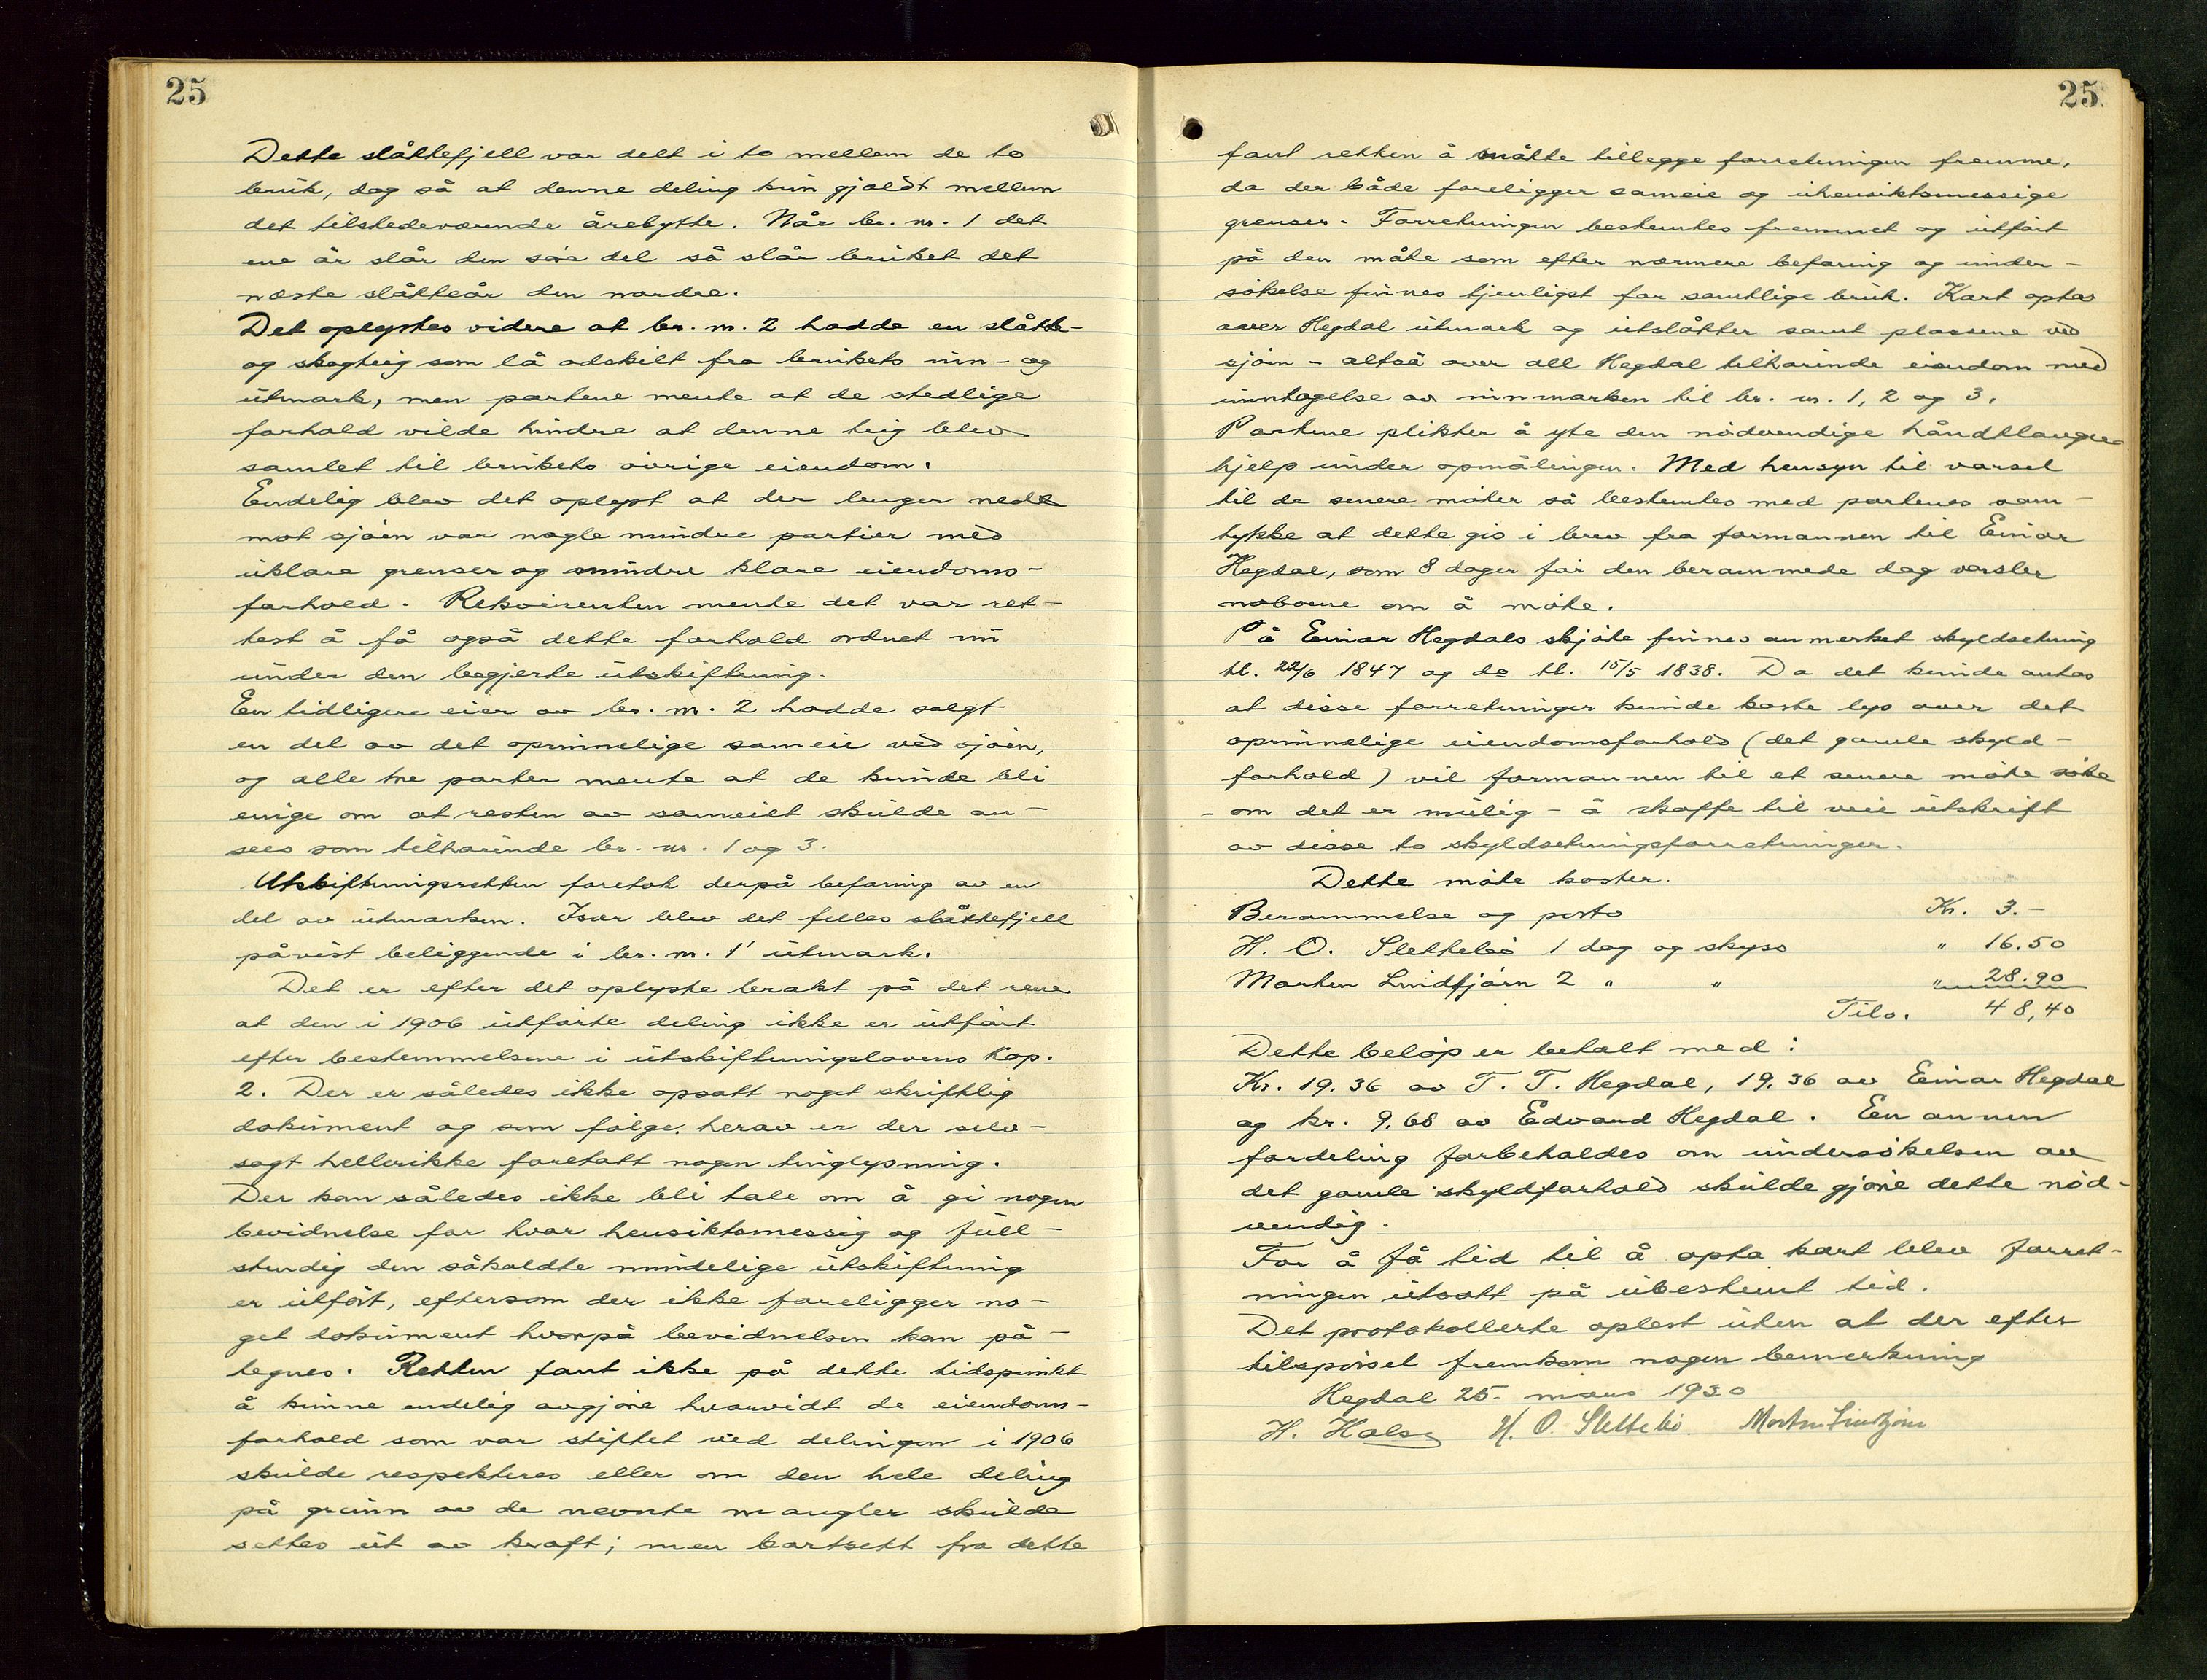 25
Dette slåttefjell var delt i to mellem de to
bruk, dog så at denne deling kun gjaldt mellem
det tilstedeværende årebytte. Når br. nr. 1 det
ene år slår den søre del så slår bruket det
næste slåtteår den nordre.
Det oplystes videre at br. nr. 2 hadde en slåtte-
og skogteig som lå adskilt fra brukets inn- og
utmark, men partene mente at de stedlige
forhold vilde hindre at denne teig blev
samlet til brukets øvrige eiendom.
Endelig blev det oplyst at der lenger nede
mot sjøen var nogle mindre partier med
uklare grenser og mindre klare eiendoms-
forhold. Rekvirenten mente det var ret-
test å få også dette forhold ordnet nu
under den begjerte utskiftning.
En tidligere eier av br. nr. 2 hadde solgt
en del av det oprinnelige sameie ved sjøen,
og alle tre parter mente at de kunde bli
enige om at resten av sameiet skulde an-
sees som tilhørende br. nr. 1 og 3.
Utskiftningsretten foretok derpå befaring av en
del av utmarken. Især blev det felles slåttefjell
påvist beliggende i br. nr. 1' utmark.
Det er efter det oplyste brakt på det rene
at den i 1906 utførte deling ikke er utført
efter bestemmelsene i utskiftningslovens Kap.
2. Der er således ikke opsatt noget skriftlig
dokument og som følge herav er der selv-
sagt hellerikke foretatt nogen tinglysning.
Der kan således ikke bli tale om å gi nogen
bevidnelse for hvor hensiktsmessig og full-
stendig den såkaldte mindelige utskiftning
er utført, eftersom der ikke foreligger no-
get dokument hvorpå bevidnelsen kan på-
tegnes. Retten fant ikke på dette tidspunkt
å kunne endelig avgjøre hvorvidt de eiendoms-
forhold som var stiftet ved delingen i 1906
skulde respekteres eller om den hele deling
på grunn av de nevnte mangler skulde
settes ut av kraft; men bortsett fra dette
25
fant retten å måtte tillegge forretningen fremme,
da der både foreligger sameie og uhensiktsmessige
grenser. Forretningen bestemtes fremmet og utført
på den måte som efter nærmere befaring og under-
søkelse finnes tjenligst for samtlige bruk. Kart optas
over Hegdal utmark og utslåtter samt plassene ved
sjøen - altså over all Hegdal tilhørende eiendom med
unntagelse av innmarken til br. nr. 1, 2 og 3.
Partene plikter å yte den nødvendige håndtlanger
hjelp under opmålingen. Med hensyn til varsel
til de senere møter så bestemtes med partenes sam-
tykke at dette gis i brev fra formannen til Einar
Hegdal, som 8 dager før den berammede dag varsler
naboene om å møte.
På Einar Hegdals skjøte finnes anmerket skyldsetning
tl. 22/6 1847 og do tl. 15/5 1838. Da det kunde antas
at disse forretninger kunde kaste lys over det
oprinnelige eiendomsforhold (det gamle skyld-
forhold) vil formannen til et senere møte søke
- om det er mulig - å skaffe til veie utskrift
av disse to skyldsetningsforretninger.
Dette møte koster.
Berammelse og porto Kr. 3.-
H. O. Slettebø 1 dag og skyss " 16.50
Morten Lindtjørn 2 " " " 28.90
Tils. 48,40
Dette beløp er betalt med:
Kr. 19.36 av T. T. Hegdal, 19.36 av Einar Hegdal
og kr. 9.68 av Edvard Hegdal. En annen
fordeling forbeholdes om undersøkelsen av
det gamle skyldforhold skulde gjøre dette nød-
vendig.
For å få tid til å opta kart blev forret-
ningen utsatt på ubestemt tid.
Det protokollerte oplest uten at der efter
tilspørsel fremkom nogen bemerkning
Hegdal 25. mars 1930
H. Halse H. O. Slettebø Morten Lindtjørn